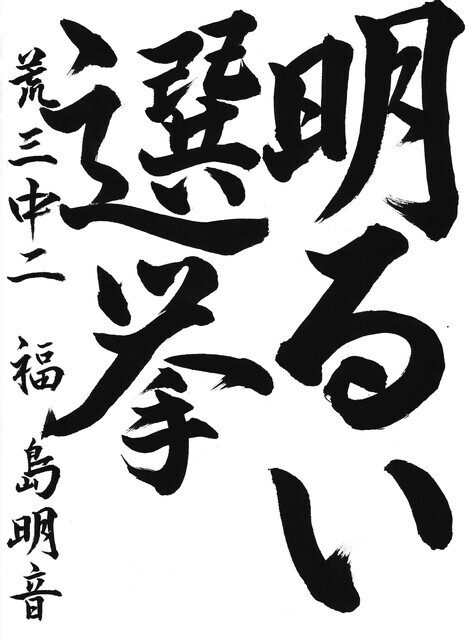 明るい
選挙
荒三中二 福島明音